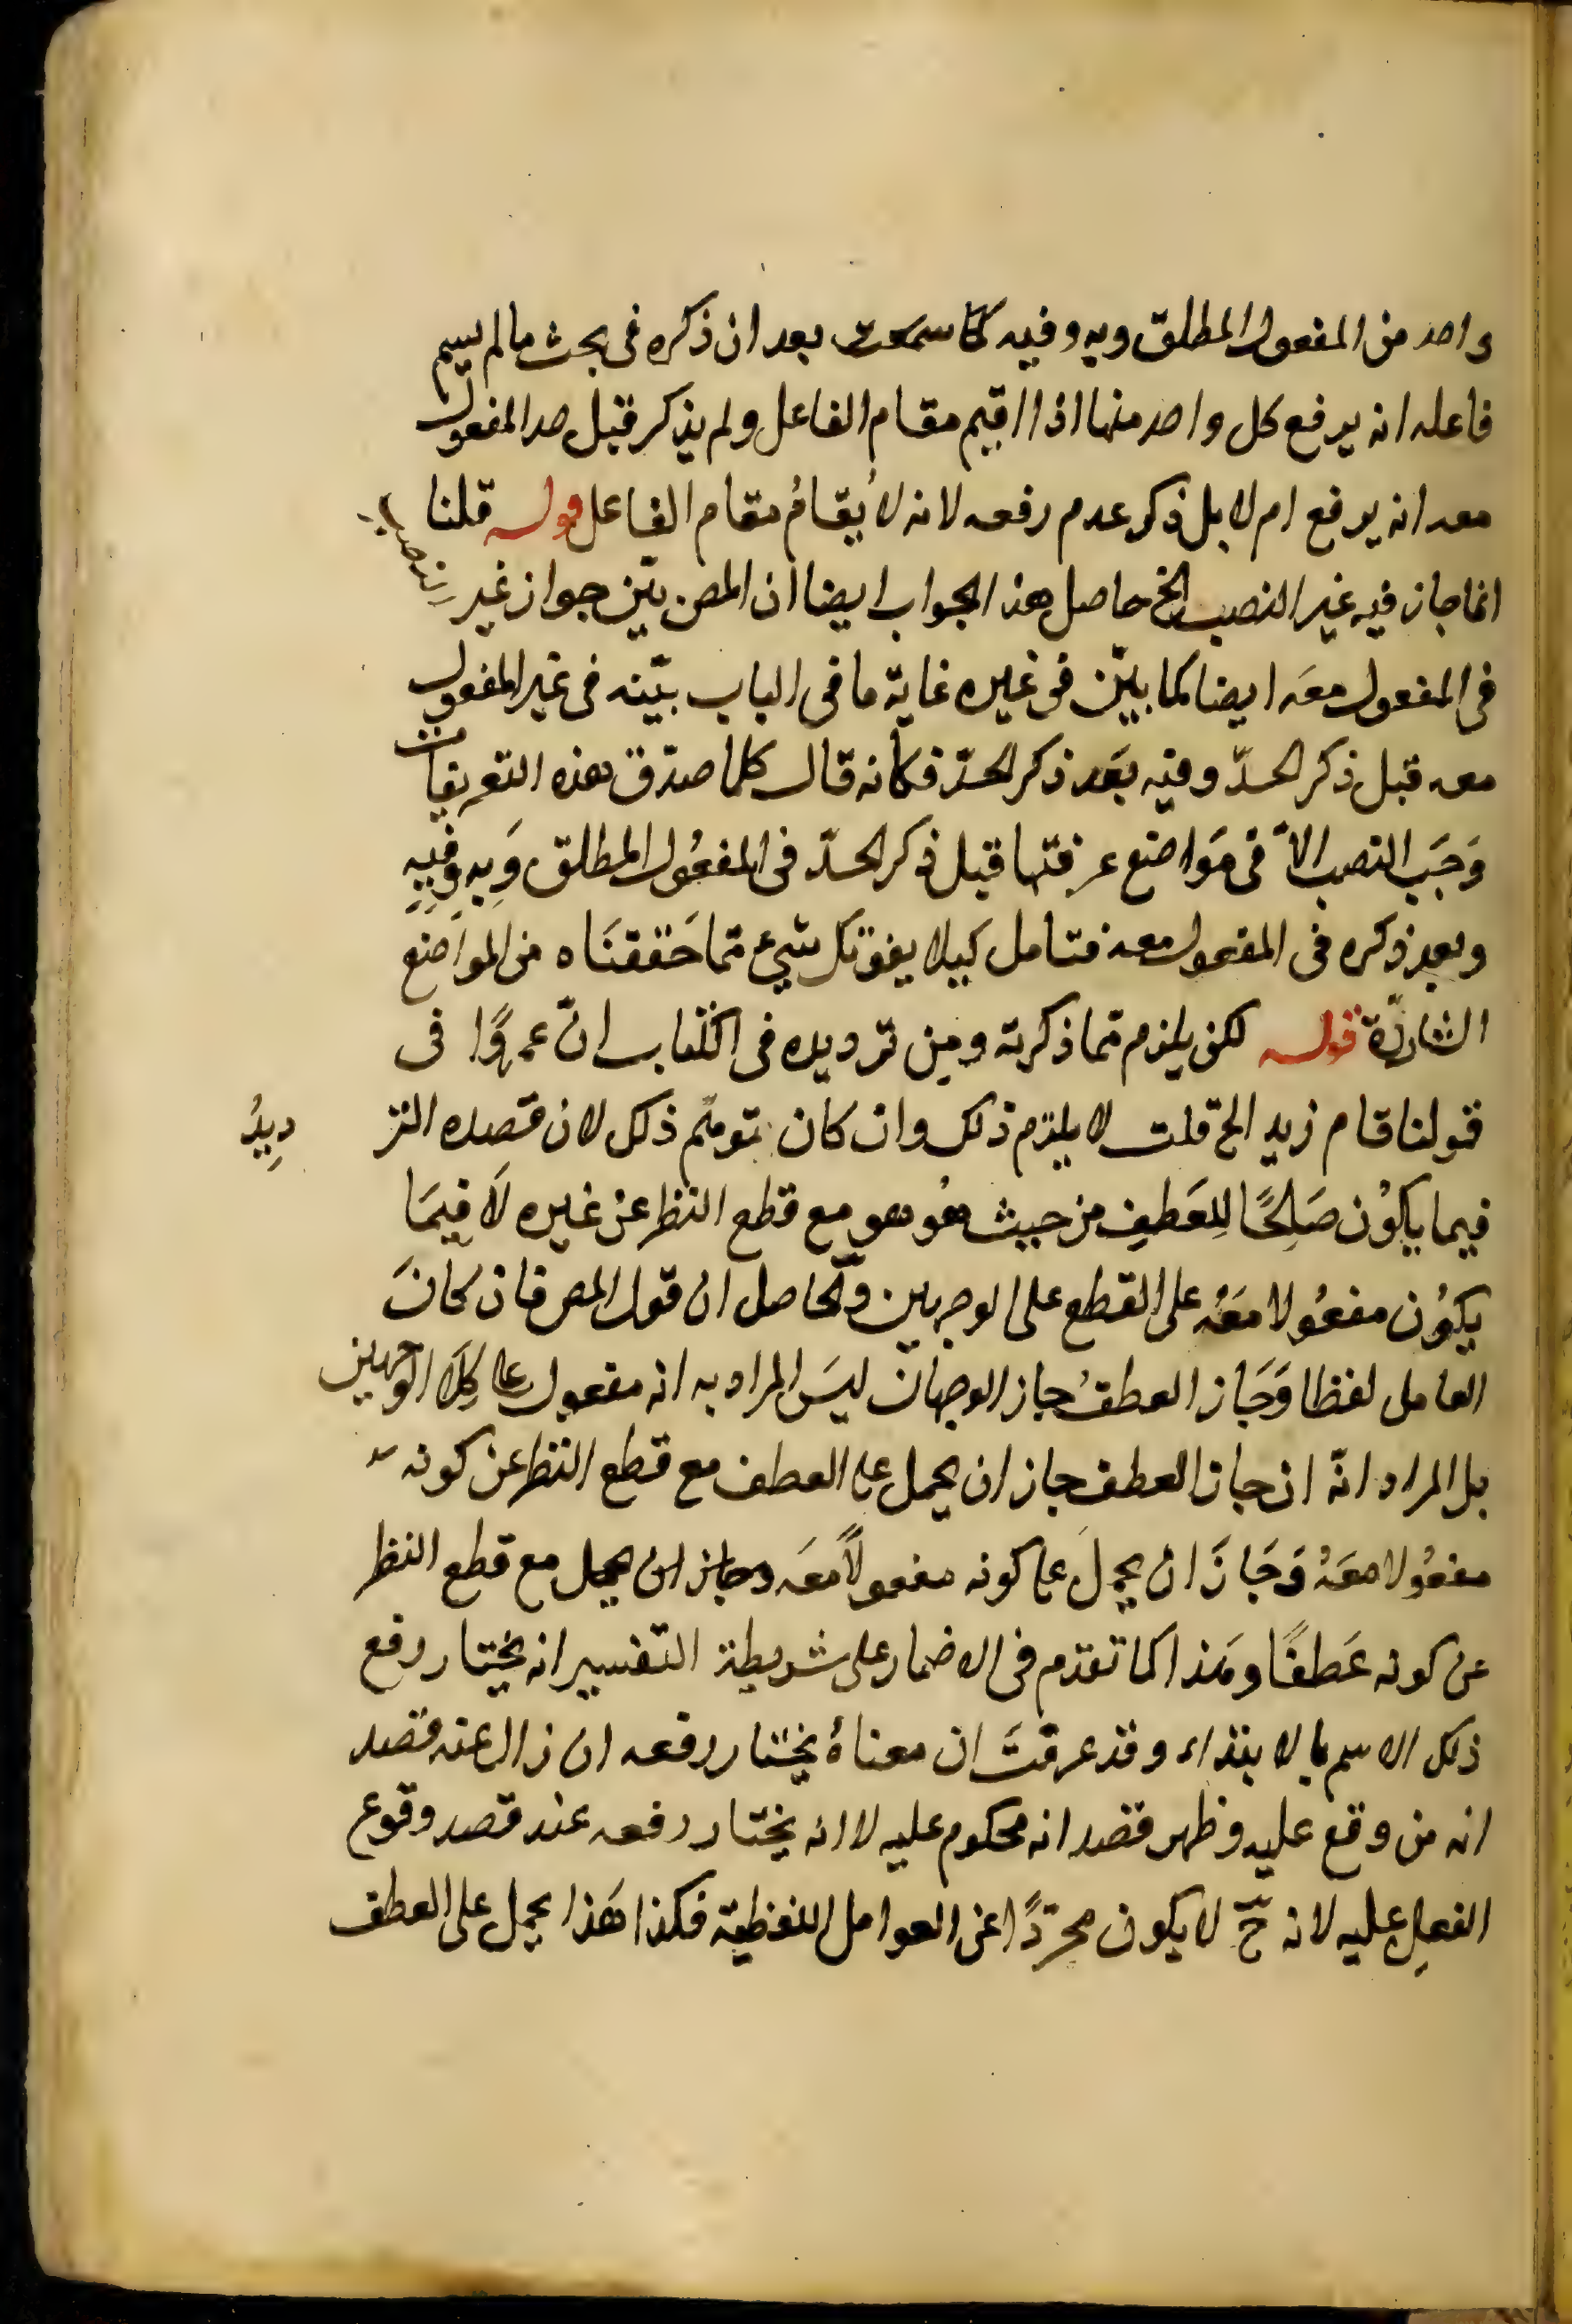 واحد من المفعول المطلق وبه وفيه كما سمعت بعد ان ذكره فى بحث ما لم يسم
فاعله انه يرفع كل واحد منها اذا اقيم مقام الفاعل ولم يذكر قبل حد المفعول
معه انه يرفع ام لا بل ذكر عدم رفعه لانه لا يُقامُ مقام الفاعل قوله قلنا
انما جاز فيه غير النصب الخ حاصل هذا الجواب ايضا ان المص بيّن جواز غير النصب
فى المفعول معَه ايضا كما بيّن فى غيره غاية ما فى الباب بيّنه فى غير المفعول
معه قبل ذكر الحدّ وفيه بَعد ذكر الحدّ فكانه قال كلما صدق هذه التعريفات
وَجَبَ النصب الاّ فى مَواضع عرفتها قبل ذكر الحدّ فى المفعُول المطلق وَبِه وَفِيهِ
وبعد ذكره فى المفعول معه فتامل كيلا يفوتك شيء مّما حَققنَاه من المواضع
الشاردّة قوله لكن يلزم مّما ذكرته ومِن ترديده فى الكتاب انّ عمروًا فى
قولنا قام زيد الخ قلت لا يلزم ذلك وان كان يتوهّم ذلك لان قصده التر ديدُ
فيما يكوُن صَالِحًا لِلعَطفِ من حيث هُو هو مع قطع النظر عن غيره لَا فِيمَا
يكوُن مفعُولا معَهُ على القطع على الوجهين والحاصل ان قول المص فان كانَ
العامل لفظا وَجَاز العطفُ جاز الوجهان ليسَ المراد به انه مفعول على كِلَا الوجهين
بل المراد انّه ان جاز العطف جاز ان يحمل على العطف مع قطع النظر عن كونه
مفعُولا معَهُ وَجَازَ ان يحملَ على كونه مفعولاً معَه وجاز ان يحمل مع قطع النظر
عن كونه عَطفًا وهَذا كما تقدم فى الاضمار على شريطة التفسير انه يختار رفع
ذلك الاسم بالابتداء وقد عرفتَ ان معناهُ يختار رفعه ان زال عنه قصد
انه من وقع عليه وظهر قصد انه محكوم عليه لا انه يختار رفعه عند قصد وقوع
الفعلِ عليه لانه حّ لا يكون مجرّدًا عن العوامل اللفظية فكذا هَذا يحمل على العطف